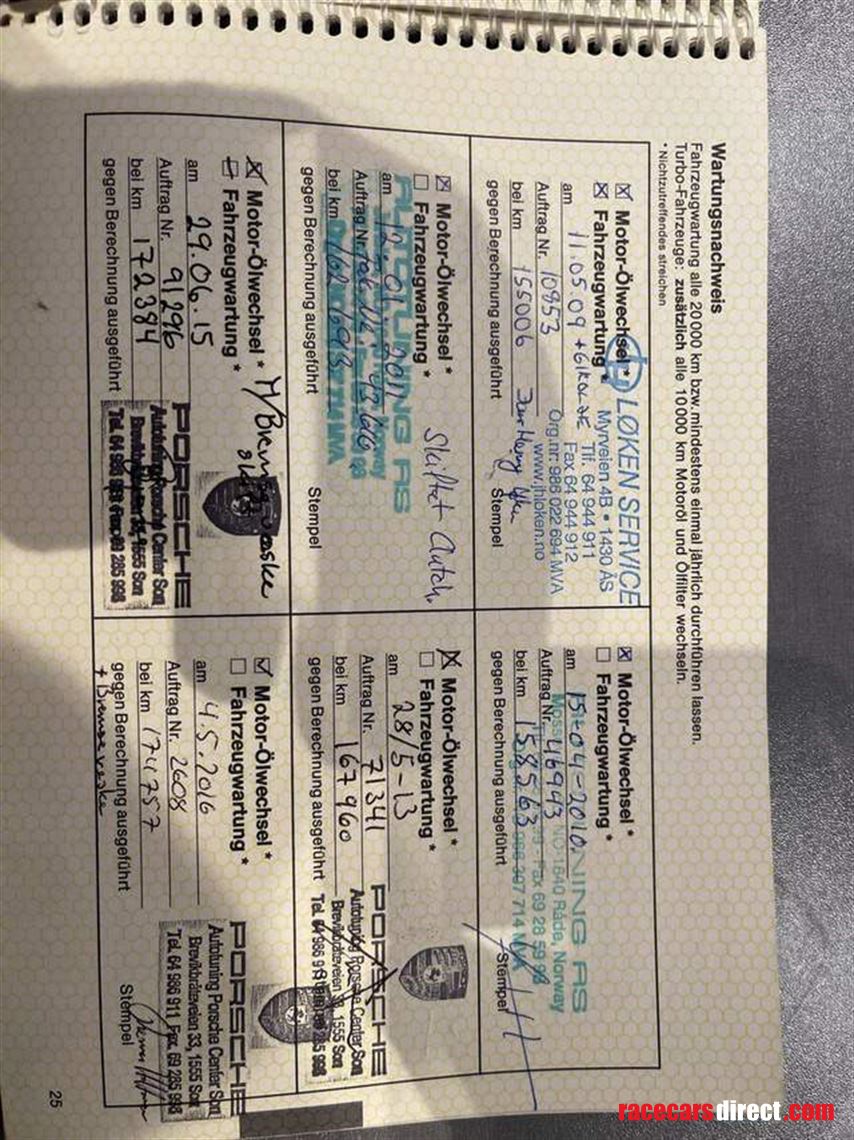 Wartungsnachweis
Fahrzeugwartung alle 20 000 km bzw. mindestens einmal jährlich durchführen lassen.
Turbo-Fahrzeuge: zusätzlich alle 10 000 km Motoröl und Ölfilter wechseln.
* Nichtzutreffendes streichen
Motor-Ölwechsel *
Fahrzeugwartung *
am 11.05.09
Auftrag Nr. 10953
bei km 155006
gegen Berechnung ausgeführt
Stempel
LØKEN SERVICE
Myrveien 4B • 1430 ÅS
Tlf. 64 944 911
Fax 64 944 912
www.jhloken.no
Org.nr. 986 022 694 MVA
Motor-Ölwechsel *
Fahrzeugwartung *
am 15-04-2010
Auftrag Nr. 46943
bei km 158563
gegen Berechnung ausgeführt
Stempel
NING AS
NO-1640 Råde, Norway
Fax 69 28 59 98
Motor-Ölwechsel *
Fahrzeugwartung *
am 12-01-2011
Auftrag Nr.
bei km
gegen Berechnung ausgeführt
Stempel
AUTOTUNING AS
Skiftet
Motor-Ölwechsel *
Fahrzeugwartung *
am 28/5-13
Auftrag Nr. 71341
bei km 167960
gegen Berechnung ausgeführt
PORSCHE
Autotuning Porsche Center Son
Brevikbråteveien 33, 1555 Son
Motor-Ölwechsel *
Fahrzeugwartung *
am 29.06.15
Auftrag Nr. 91296
bei km 172384
gegen Berechnung ausgeführt
PORSCHE
Autotuning Porsche Center Son
Brevikbråteveien 33, 1555 Son
Tel. 64 986 911 Fax. 69 285 998
Motor-Ölwechsel *
Fahrzeugwartung *
am 4.5.2016
Auftrag Nr. 2608
bei km 174757
gegen Berechnung ausgeführt
+ Bremsevæske
Stempel
PORSCHE
Autotuning Porsche Center Son
Brevikbråteveien 33, 1555 Son
Tel. 64 986 911 Fax. 69 285 998
25
racecarsdirect.com